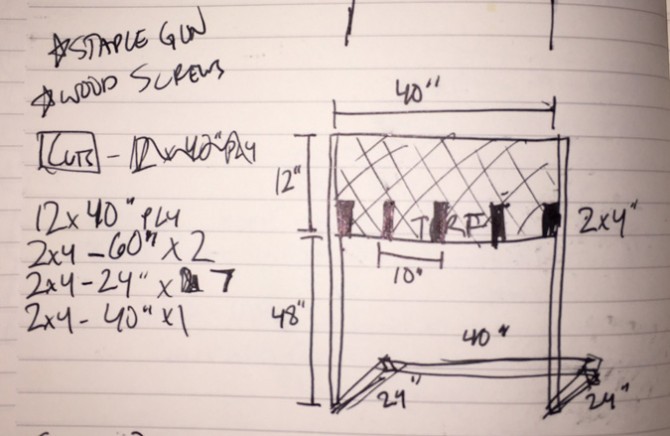 ☆STAPLE GUN
☆WOOD SCREWS
CUTS - 12x40" PLY
12x40" PLY
2x4 - 60" x 2
2x4 - 24" x 7
2x4 - 40" x 1
40"
12"
2x4"
10"
48"
40"
24"
24"